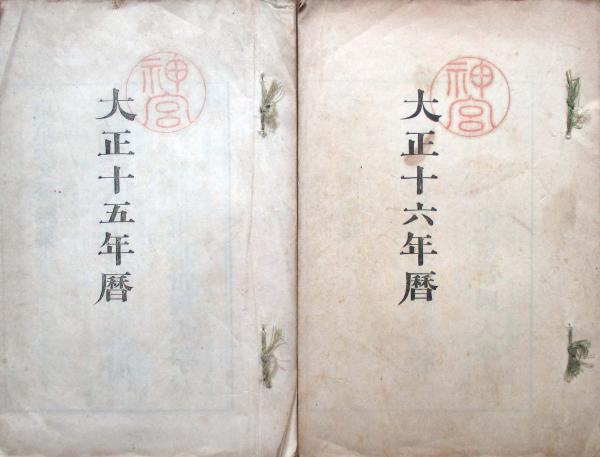 神宮
大正十五年暦
神宮
大正十六年暦